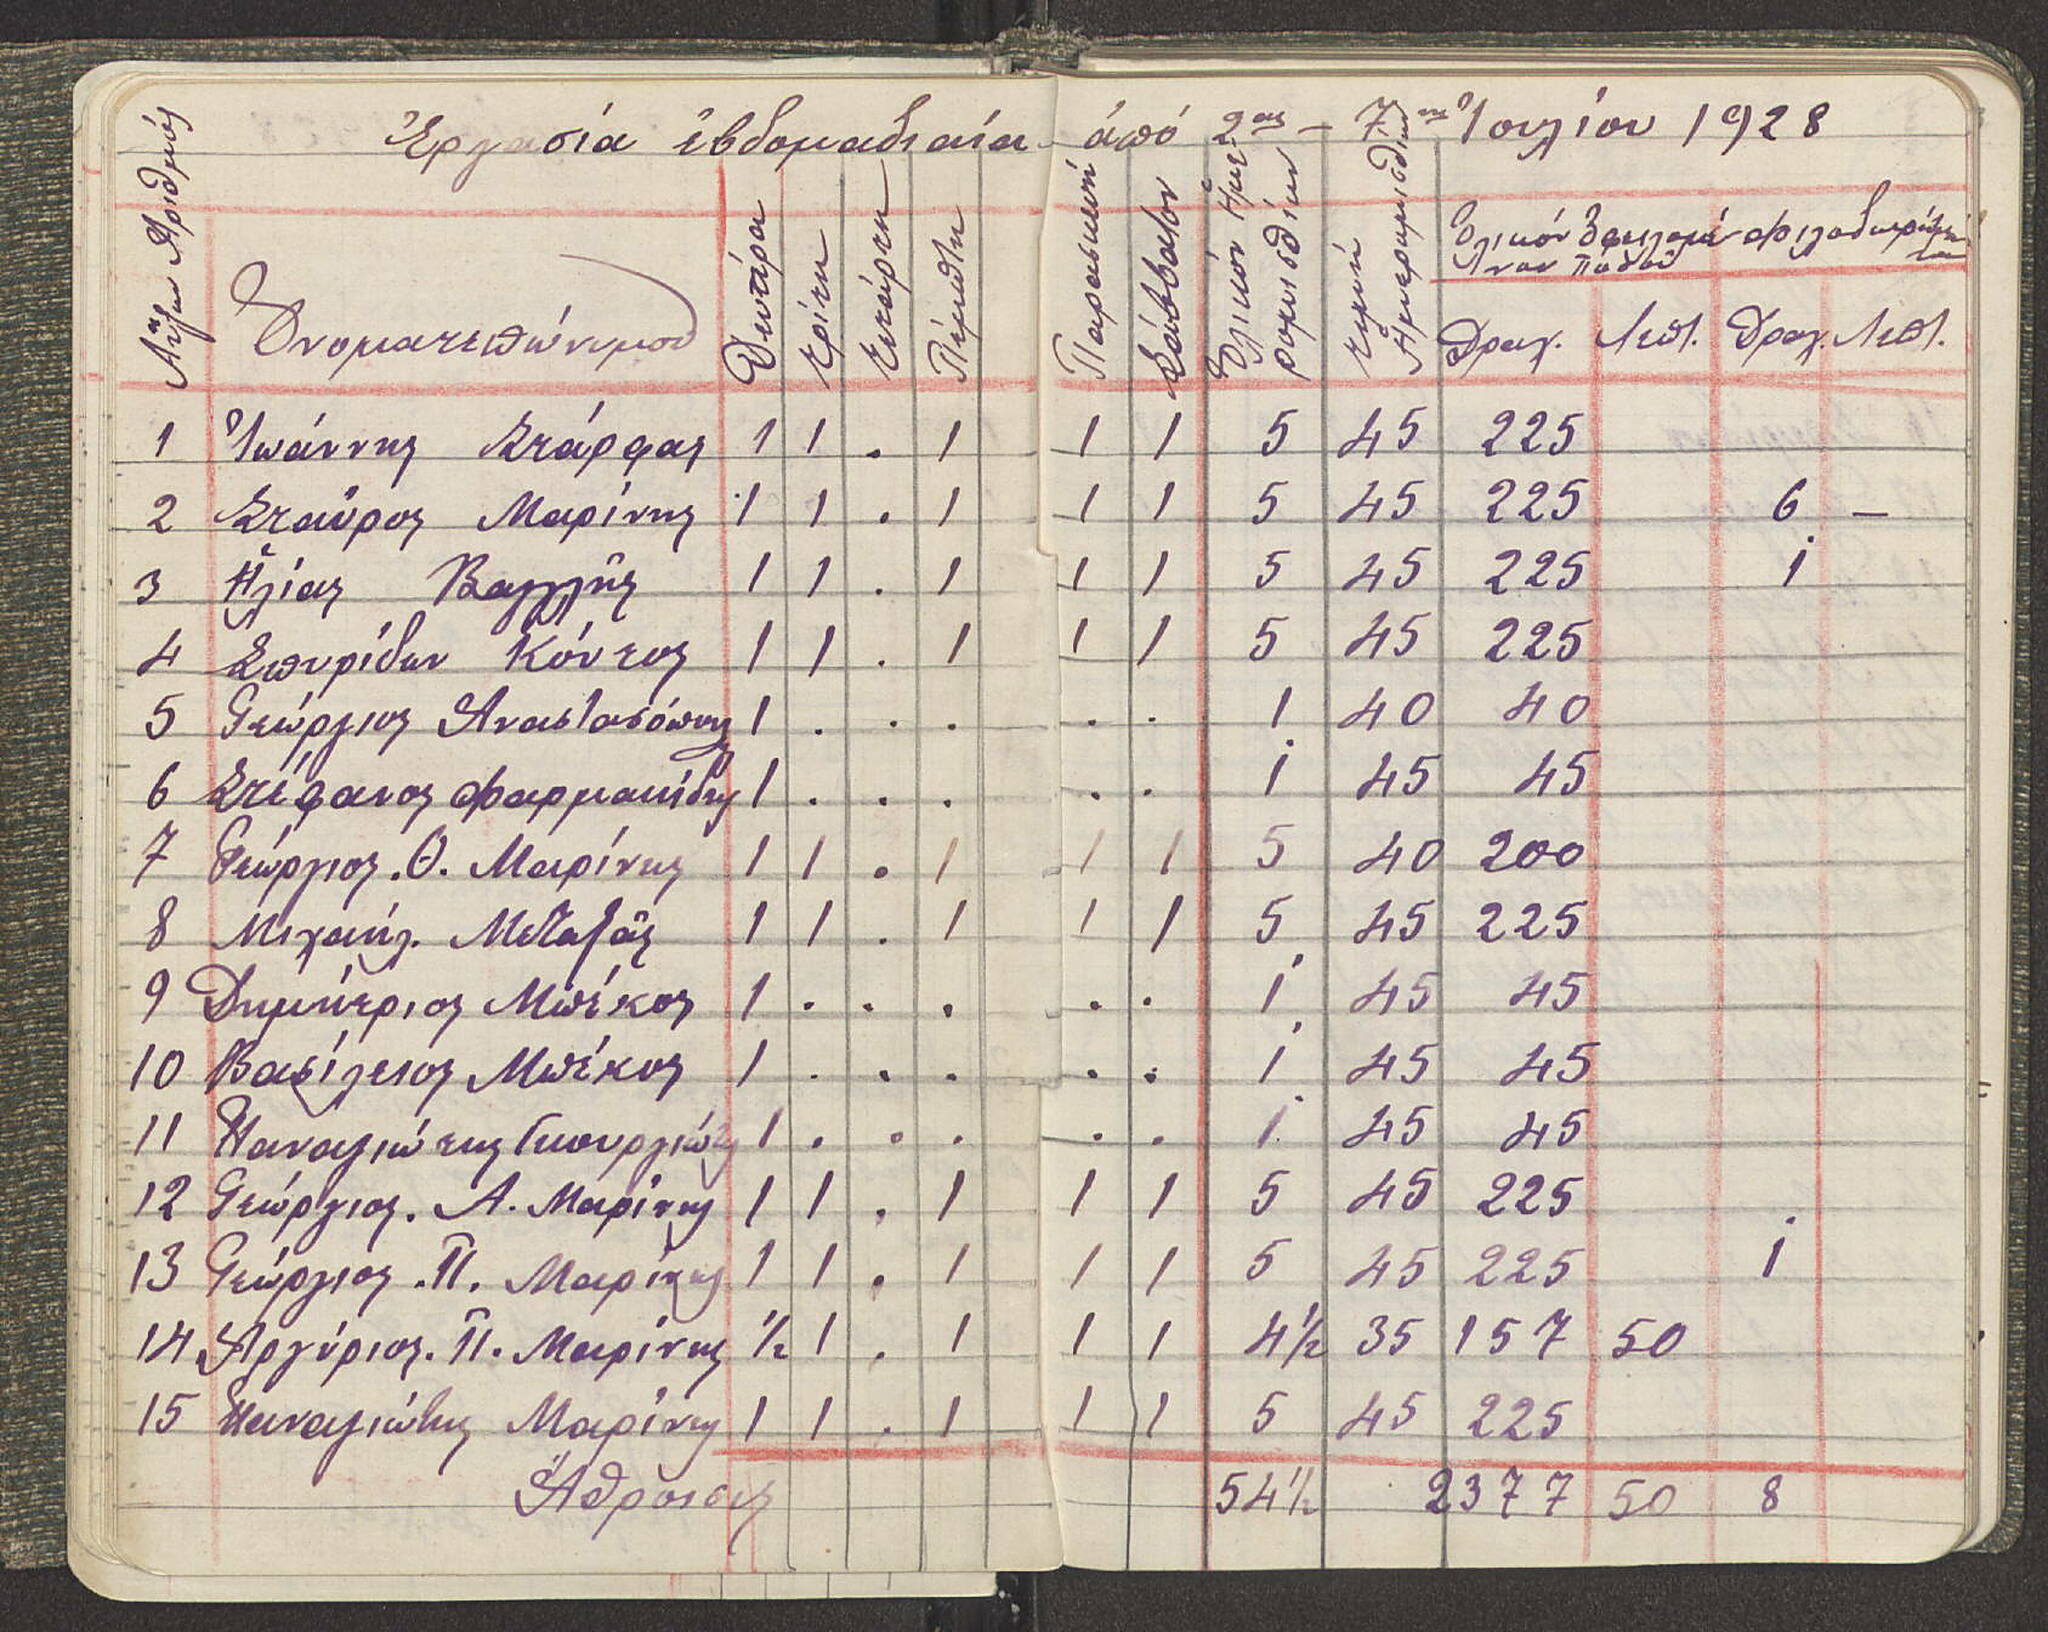 Ἐργασία ἑβδομαδιαία ἀπό 2ας – 7ης Ἰουλίου 1928
Αὔξων Ἀριθμός Ὀνοματεπώνυμον Δευτέρα Τρίτη Τετάρτη Πέμπτη Παρασκευή Σάββατον Ὁλικόν Ἡμερομισθίων Τιμή Ἡμερομισθίων
Ὁλικόν Ποσοῦ
Δραχ. Λεπτ. Δραχ. Λεπτ.
1 Ἰωάννης Στάρφας 1 1 . 1 1 1 5 45 225
2 Σταῦρος Μαρίνης 1 1 . 1 1 1 5 45 225 6 –
3 Ἠλίας Βαγγλῆς 1 1 . 1 1 1 5 45 225 1
4 Σπυρίδων Κόντος 1 1 . 1 1 1 5 45 225
5 Γεώργιος Αναστασόπους 1 . . . . . 1 40 40
6 Στέφανος Φαρμακίδης 1 . . . . . 1 45 45
7 Γεώργιος . Θ. Μαρίνης 1 1 . 1 1 1 5 40 200
8 Μιχαήλ. Μεταξᾶς 1 1 . 1 1 1 5 45 225
9 Δημήτριος Μπέκος 1 . . . . . 1 45 45
10 Βασίλειος Μπέκος 1 . . . . . 1 45 45
11 Παναγιώτης Γκουργιώτης 1 . . . . . 1 45 45
12 Γεώργιος . Α. Μαρίνης 1 1 . 1 1 1 5 45 225
13 Γεώργιος . Π. Μαρίνης 1 1 . 1 1 1 5 45 225 1
14 Ἀργύριος . Π. Μαρίνης ½ 1 . 1 1 1 4½ 35 157 50
15 Παναγιώτης Μαρίνης 1 1 . 1 1 1 5 45 225
Ἄθροισις 54½ 2377 50 8